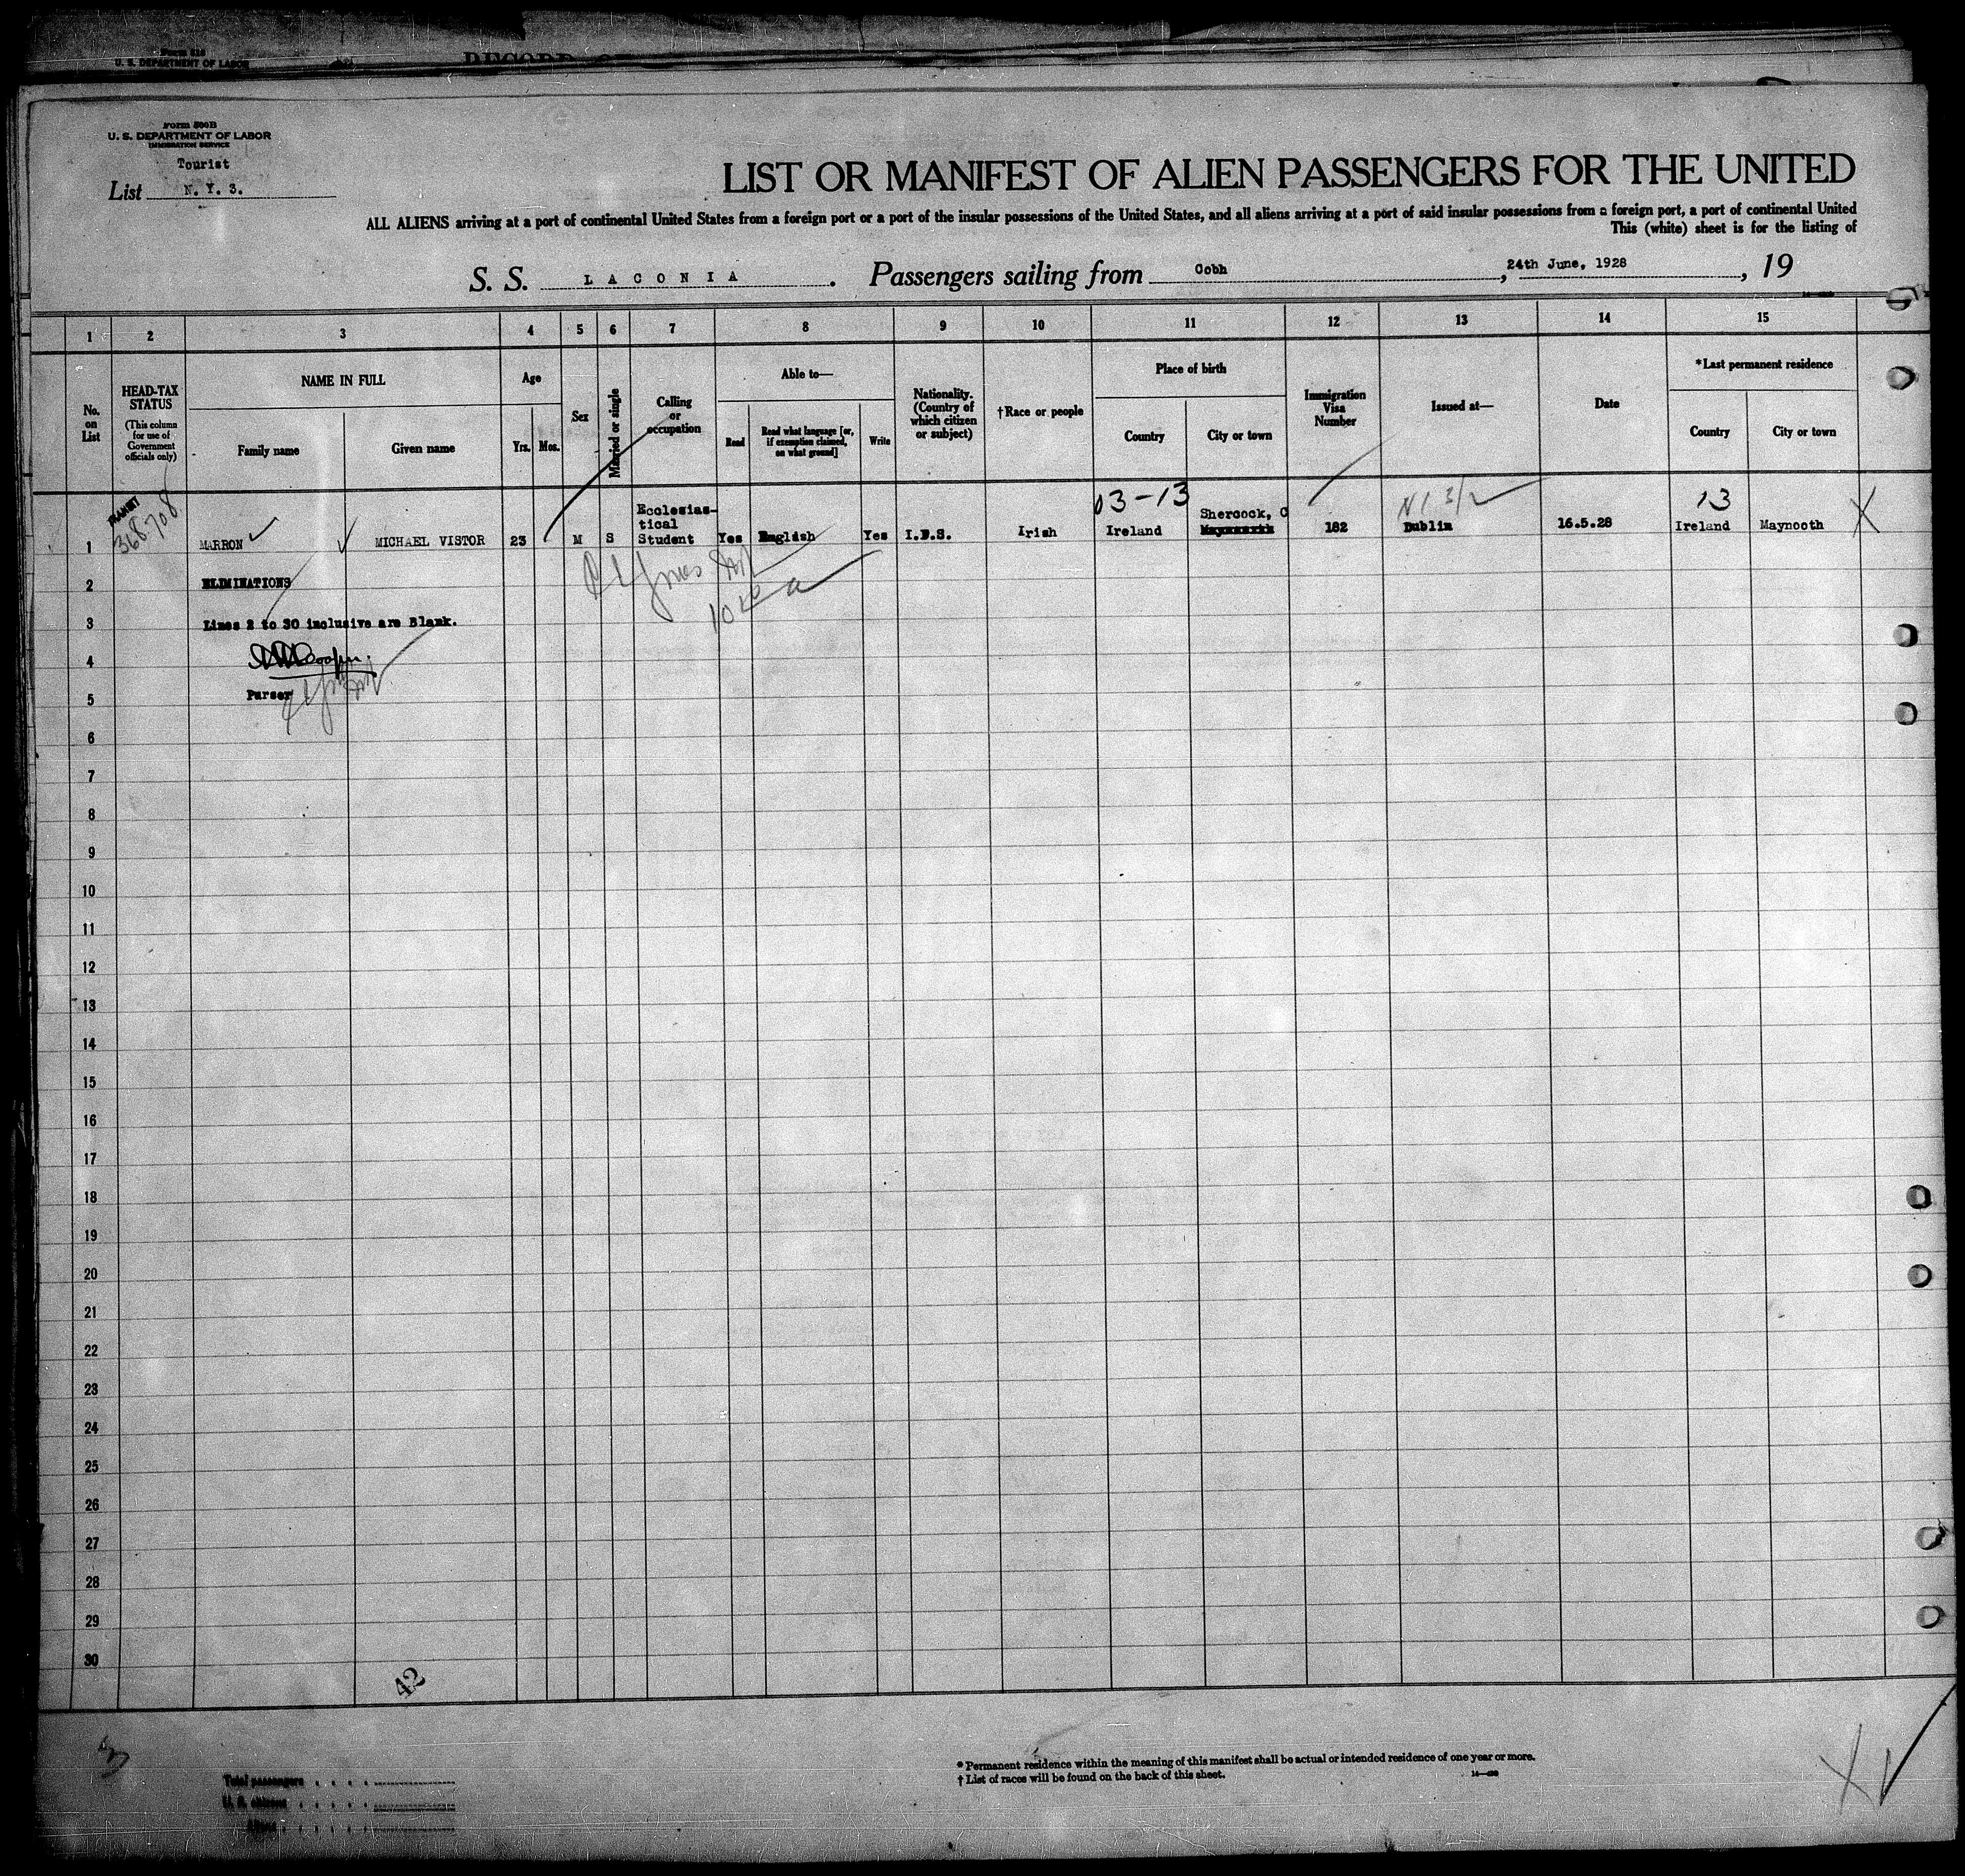 Form 516
U. S. DEPARTMENT OF LABOR
Form 500B
U. S. DEPARTMENT OF LABOR
IMMIGRATION SERVICE
Tourist
List N. Y. 3.
LIST OR MANIFEST OF ALIEN PASSENGERS FOR THE UNITED
ALL ALIENS arriving at a port of continental United States from a foreign port or a port of the insular possessions of the United States, and all aliens arriving at a port of said insular possessions from a foreign port, a port of continental United
This (white) sheet is for the listing of
S. S. LACONIA. Passengers sailing from Cobh, 24th June, 1928, 19
1 2 3 4 5 6 7 8 9 10 11 12 13 14 15
No. on List
HEAD-TAX STATUS
(This column for use of Government officials only)
NAME IN FULL
Family name
Given name
Age
Yrs. Mos.
Sex
Married or single
Calling or occupation
Able to—
Read
Read what language [or, if exemption claimed, on what ground]
Write
Nationality. (Country of which citizen or subject)
†Race or people
Place of birth
Country
City or town
Immigration Visa Number
Issued at—
Date
*Last permanent residence
Country
City or town
TRANSIT
368708
03-13
13
1 MARRON MICHAEL VISTOR 23 M S Ecclesias-tical Student Yes English Yes I.F.S. Irish Ireland Shercock, C 182 Dublin 16.5.28 Ireland Maynooth X
2 ELIMINATIONS
3 Lines 2 to 30 inclusive are Blank.
4
5 Purser
6
7
8
9
10
11
12
13
14
15
16
17
18
19
20
21
22
23
24
25
26
27
28
29
30
42
3
Total passengers
U. S. citizens
Aliens
* Permanent residence within the meaning of this manifest shall be actual or intended residence of one year or more.
† List of races will be found on the back of this sheet.